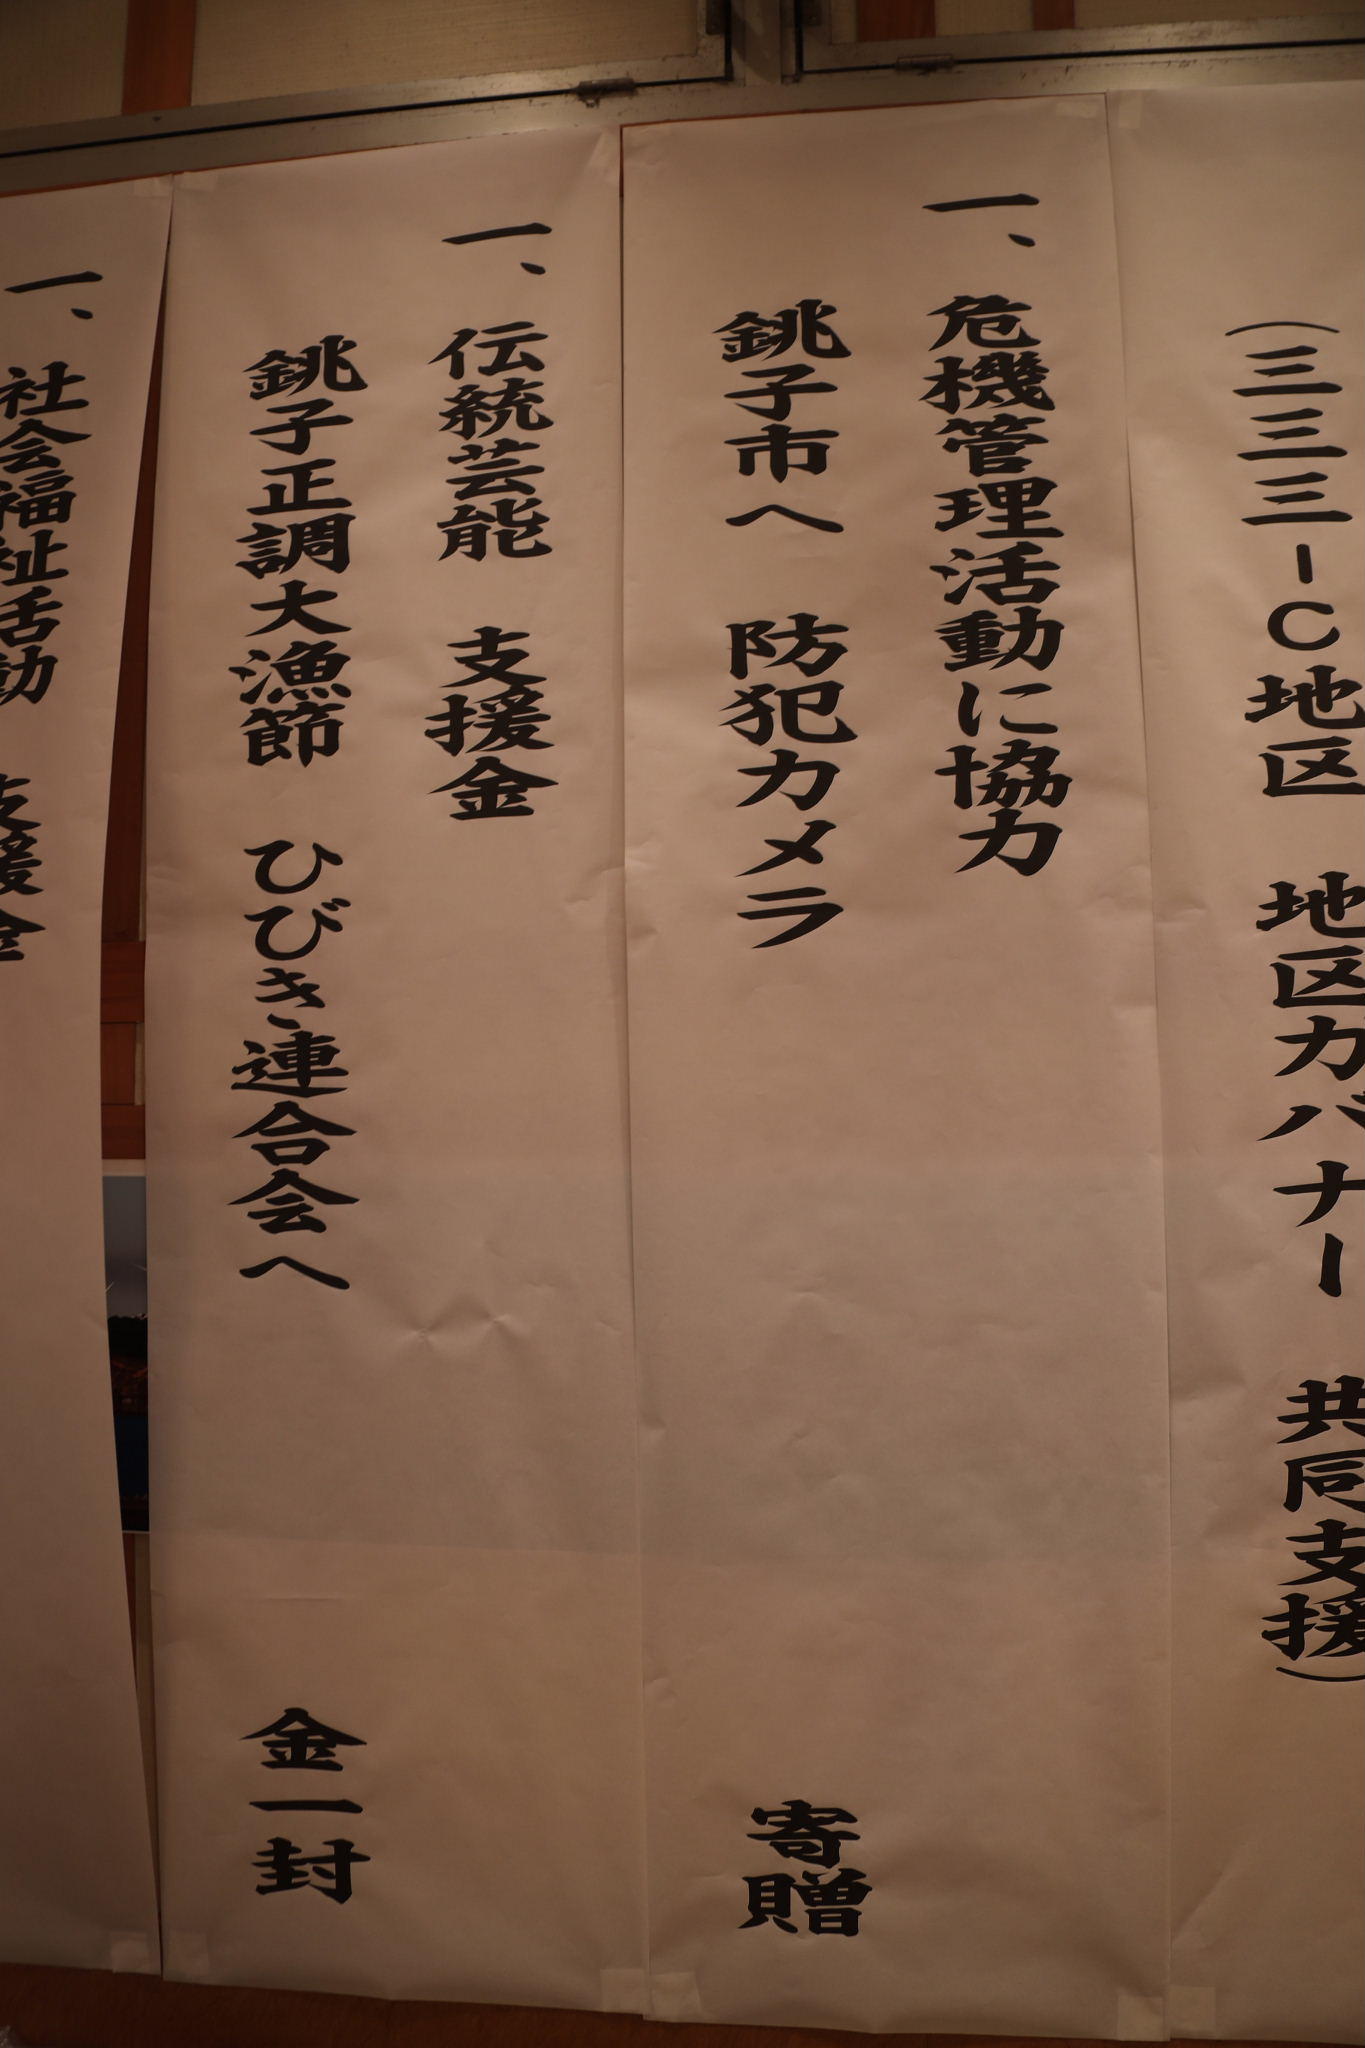 （三三三－C地区　地区ガバナー　共同支援）
一、危機管理活動に協力
銚子市へ　防犯カメラ　寄贈
一、伝統芸能　支援金
銚子正調大漁節　ひびき連合会へ　金一封
一、社会福祉活動　支援金